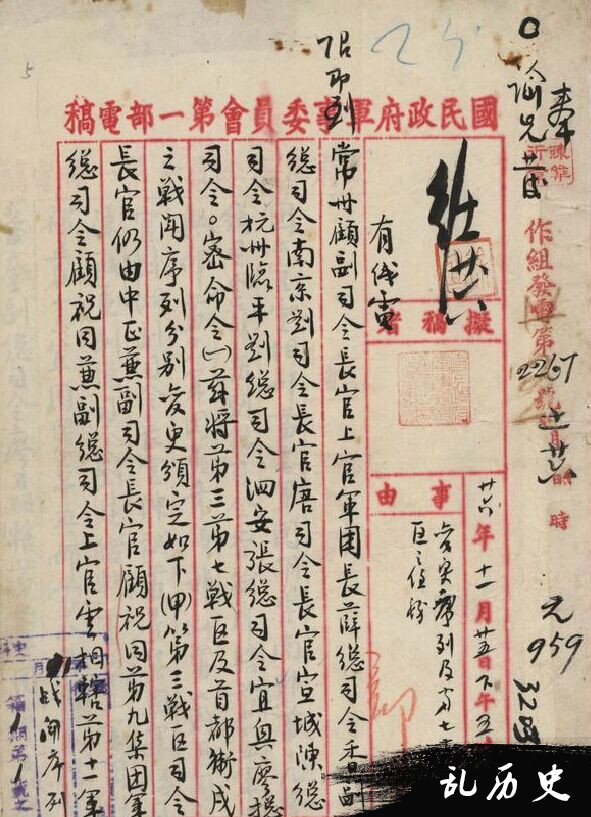 國民政府軍事委員會第一部電稿
奉
諭兄
作組發電第2267號 月 時
959
擬稿者
事由
廿六年十一月廿五日下午五
變更序列及第七
區之任務
有戌電
限即到
常州顧副司令長官上官軍團長薛總司令香副
總司令南京劉司令長官唐司令長官宣城陳總
司令杭州臨平劉總司令泗安張總司令宜興廖總
司令。密命令(一)茲將第三第七戰區及首都衛戍
之戰鬥序列分別變更頒定如下(甲)第三戰區司令
長官仍由中正兼副司令長官顧祝同第九集團軍
總司令顧祝同兼副總司令上官雲相轄第十一軍
戰鬥序列
乱历史